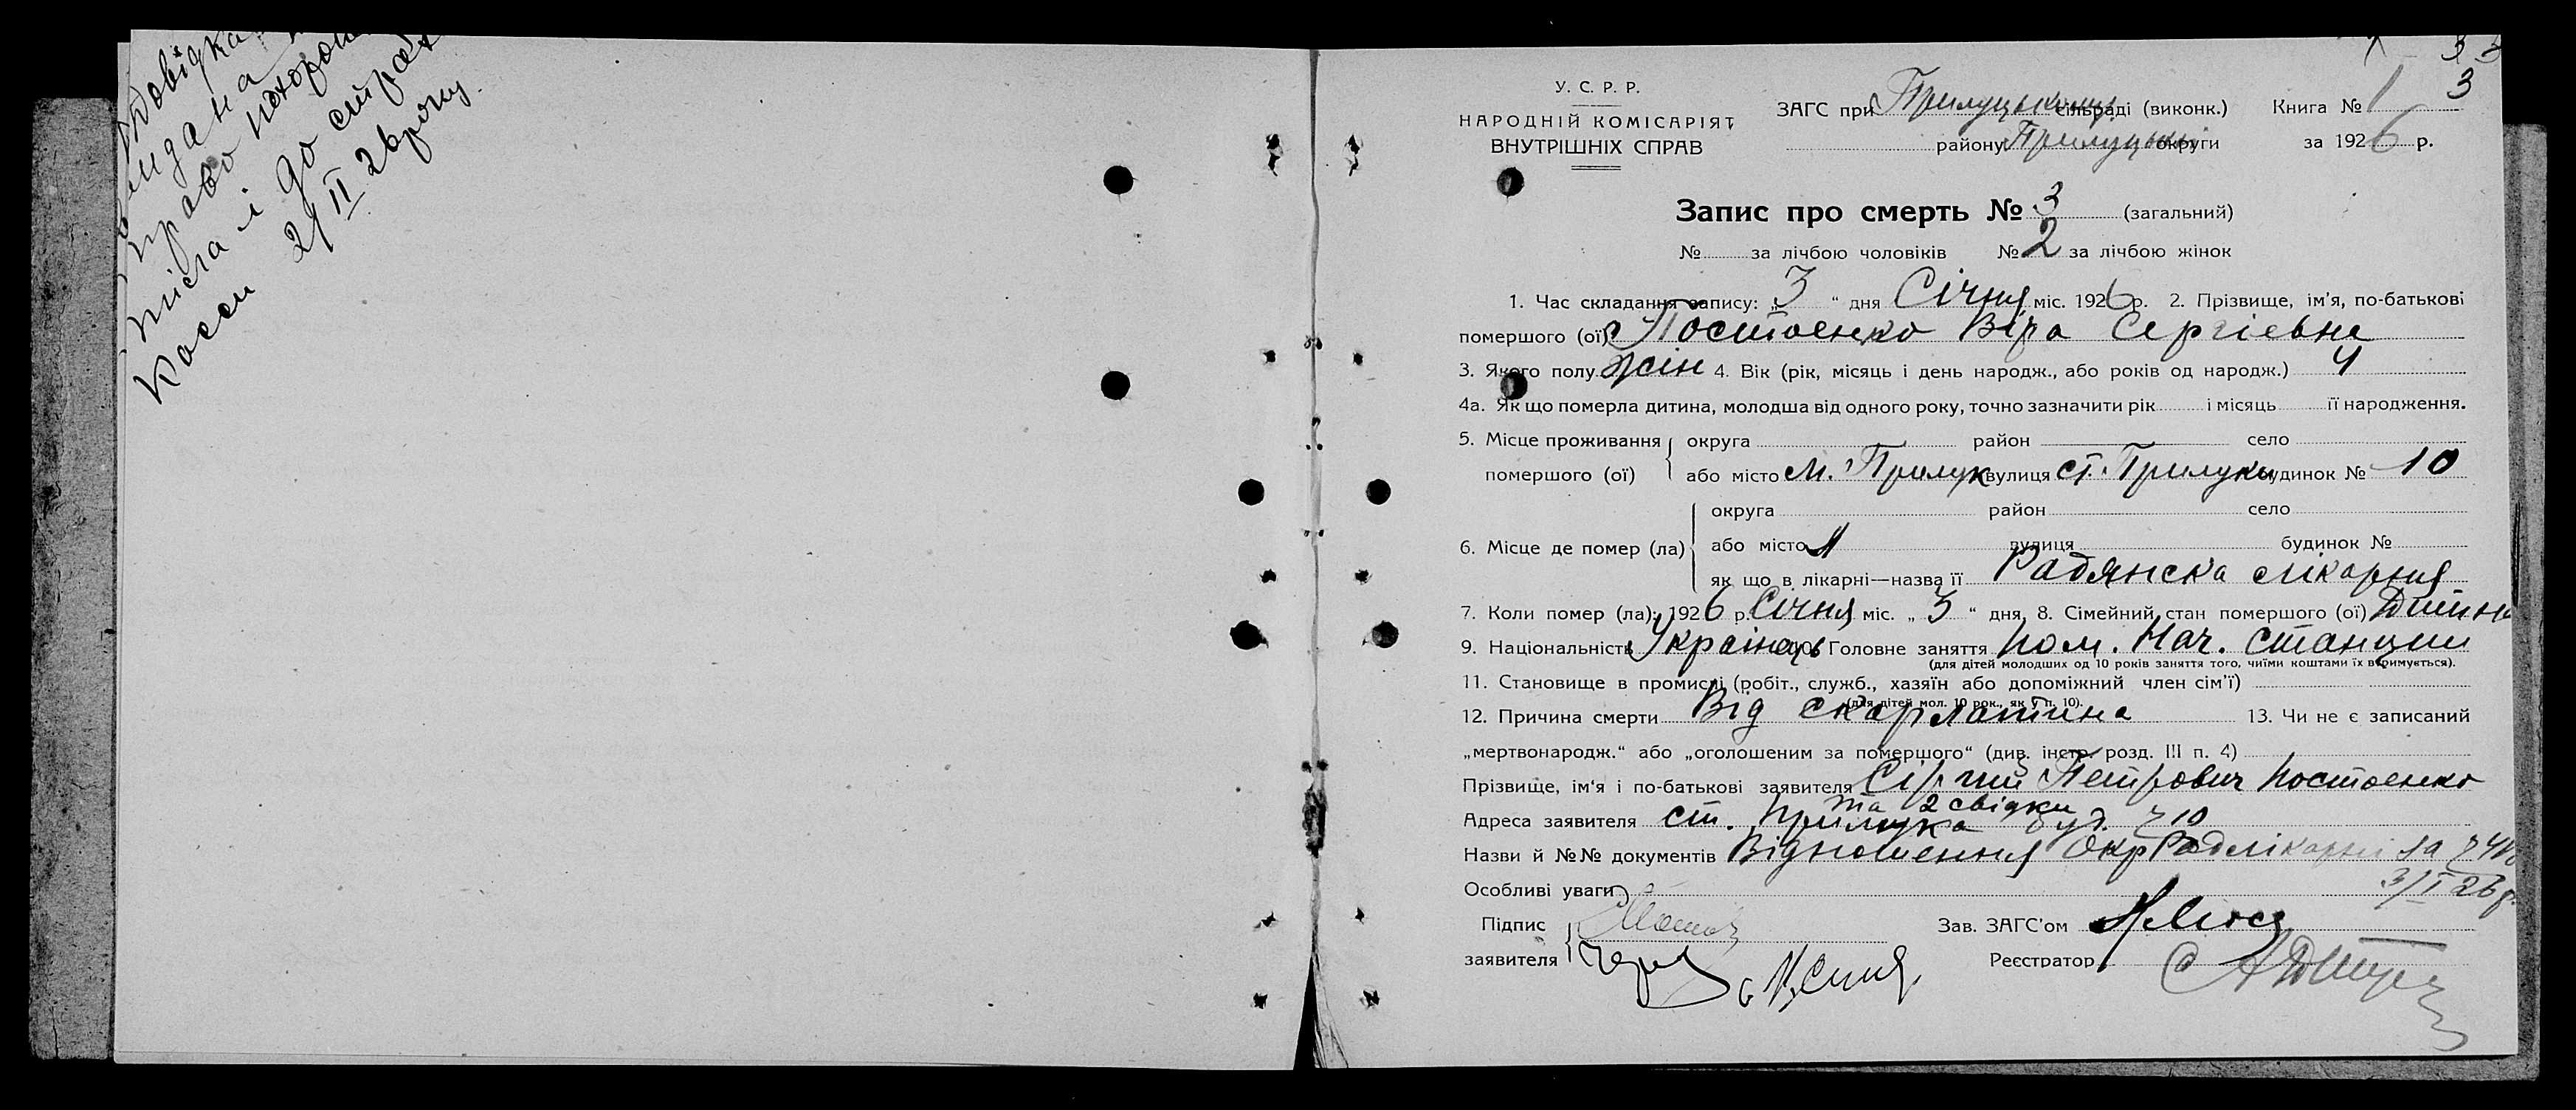 Довідка
видана
право похорон
після і до страх
касси 2/II 26 року.
3
У. С. Р. Р.
НАРОДНІЙ КОМІСАРІЯТ
ВНУТРІШНІХ СПРАВ
ЗАГС при Прилуцькому сільраді (виконк.) Книга № 1
району Прилуцької округи за 1926 р.
Запис про смерть № 3 (загальний)
№ за лічбою чоловіків № 2 за лічбою жінок
1. Час складання запису: „3“ дня Січня міс. 1926 р. 2. Прізвище, ім'я, по-батькові
помершого (ої) Постоенко Віра Сергіевна
3. Якого полу жін 4. Вік (рік, місяць і день народж., або років од народж.) 4
4а. Як що померла дитина, молодша від одного року, точно зазначити рік і місяць її народження.
5. Місце проживання помершого (ої) округа район село
або місто м. Прилук вулиця ст. Прилуки будинок № 10
6. Місце де помер (ла) округа район село
або місто вулиця будинок №
як що в лікарні—назва її Радянска лікарня
7. Коли помер (ла): 1926 р. Січня міс. „3“ дня, 8. Сімейний стан помершого (ої) Дитина
9. Національність Українець 10. Головне заняття пом. Нач. станции
(для дітей молодших од 10 років заняття того, чиїми коштами їх втримується).
11. Становище в промислі (робіт., служб., хазяїн або допоміжний член сім'ї)
(для дітей мол. 10 рок., як у п. 10).
12. Причина смерти Від скарлатина 13. Чи не є записаний
„мертвонародж.“ або „оголошеним за помершого“ (див. інстр. розд. III п. 4)
Прізвище, ім'я і по-батькові заявителя Сергий Петрович Постоенко
та 2 свідки
Адреса заявителя ст. Прилука буд. 10
Назви й №№ документів Відношення Окр Радлікарні за
Особливі уваги 3/I 26 р.
Підпис заявителя
Зав. ЗАГС'ом
Реєстратор